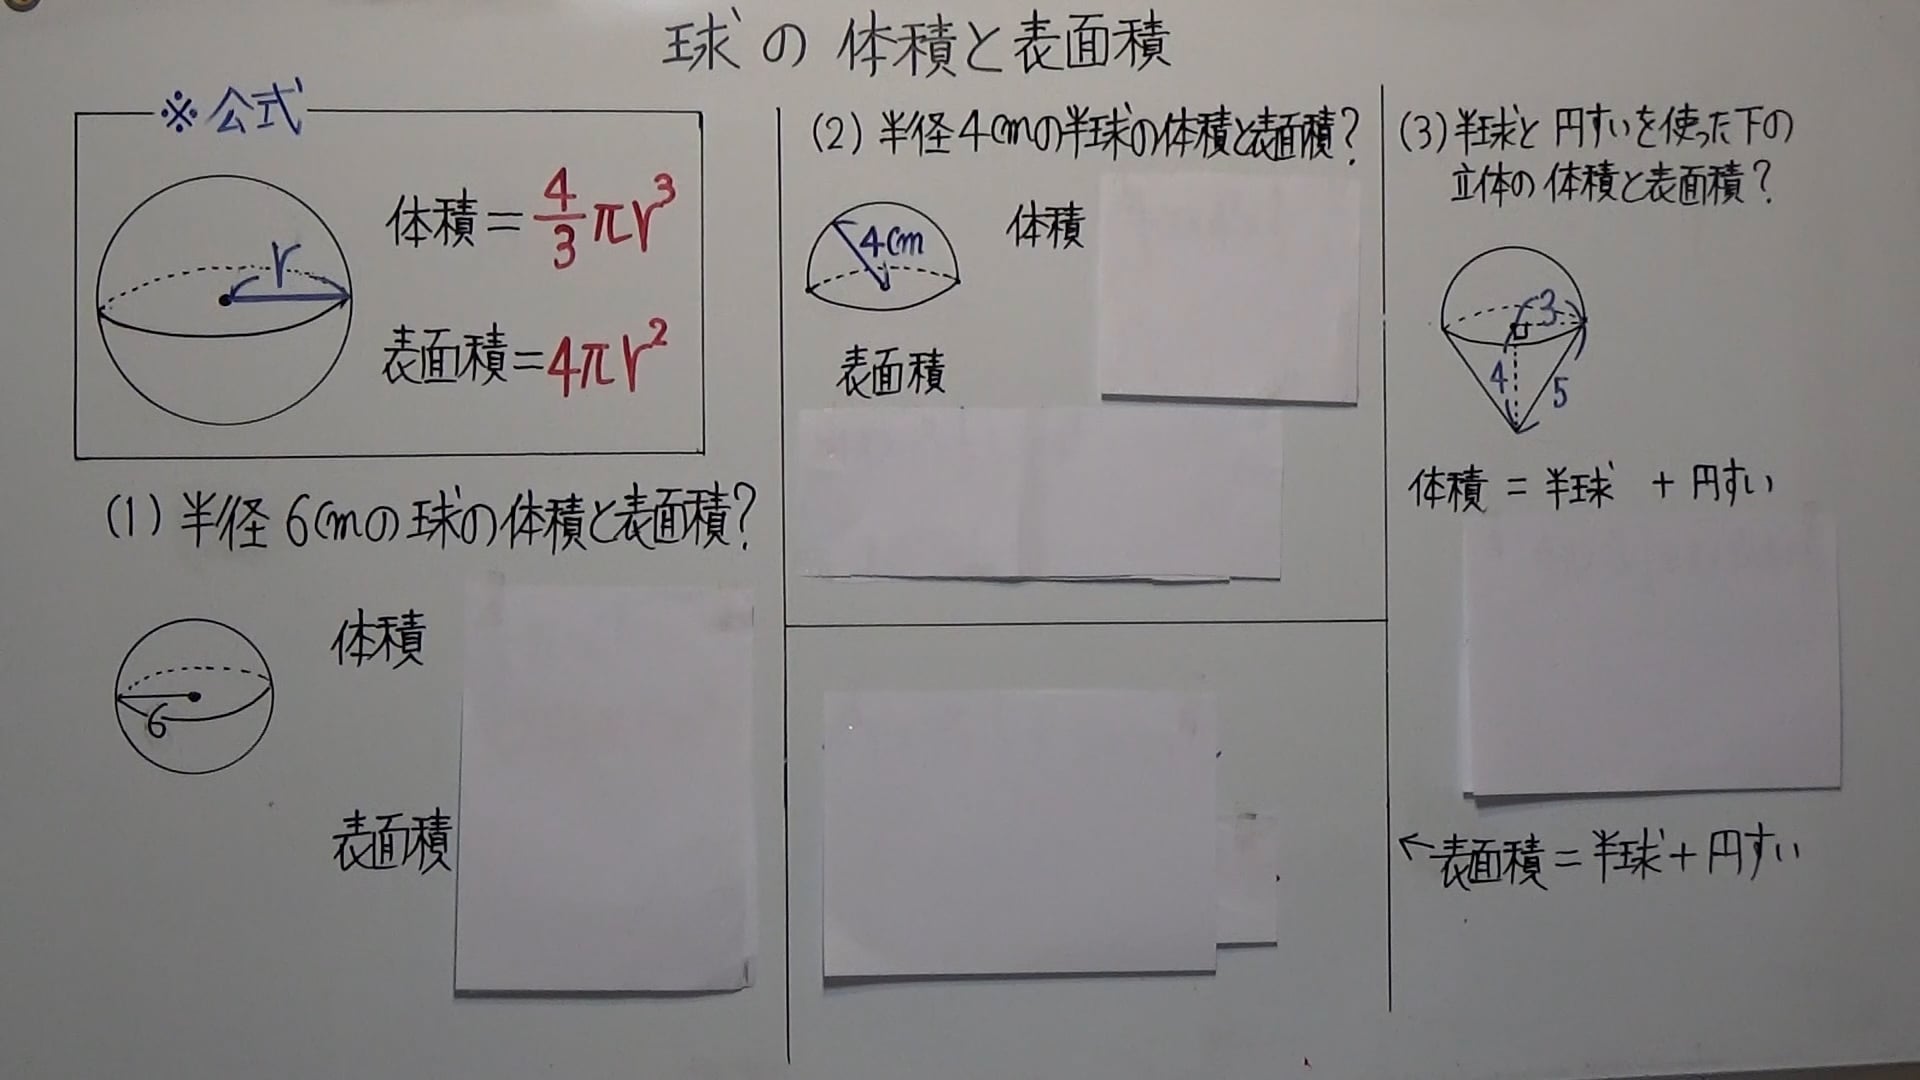 球の体積と表面積
※公式
r
体積=4/3πr³
表面積=4πr²
(1)半径6cmの球の体積と表面積?
6
体積
表面積
(2)半径4cmの半球の体積と表面積?
4cm
体積
表面積
(3)半球と円すいを使った下の
立体の体積と表面積?
3
4
5
体積=半球+円すい
←表面積=半球+円すい